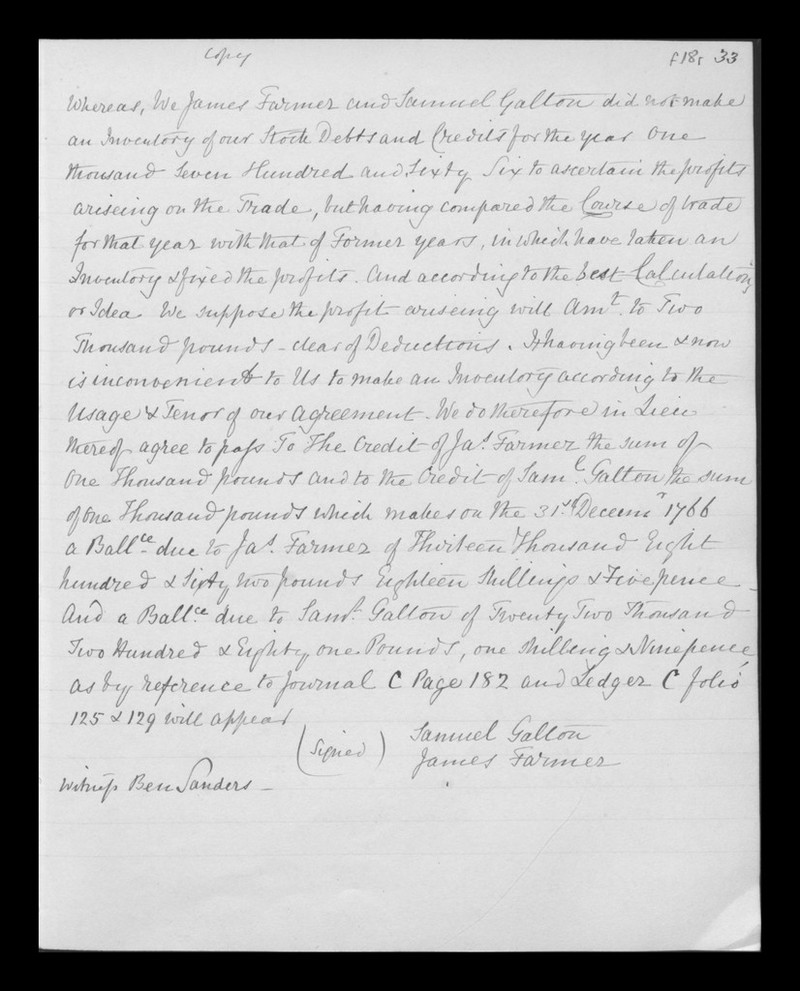 Copy
f18r 33
Whereas, We James Farmer and Samuel Galton did not make
an Inventory of our Stock Debts and Credits for the year One
thousand Seven Hundred and Sixty Six to ascertain the profits
ariseing on the Trade, but having compared the Course of trade
for that year with that of Former years, in which have taken an
Inventory & fixed the profits. And according to the best Calculations
or Idea We suppose the profit ariseing will Amt. to Two
Thousand pounds - clear of Deductions. It having been & now
is inconvenient to Us to make an Inventory according to the
Usage & Tenor of our Agreement. We do therefore in Lieu
thereof agree to pass To The Credit of Jas. Farmer the sum of
One Thousand pounds and to the Credit of Saml. Galton the sum
of One Thousand pounds which makes on the 31st. Decemr 1766
a Ballce due to Jas. Farmer of Thirteen Thousand Eight
hundred & Sixty two pounds Eighteen Shillings & Fivepence -
And a Ballce. due to Saml. Galton of Twenty Two Thousand
Two Hundred & Eighty one Pounds, one shilling & Ninepence,
as by reference to Journal C Page 182 and Ledger C folio
125 & 129 will appear
(signed) Samuel Galton
James Farmer
Witness Ben Sanders -